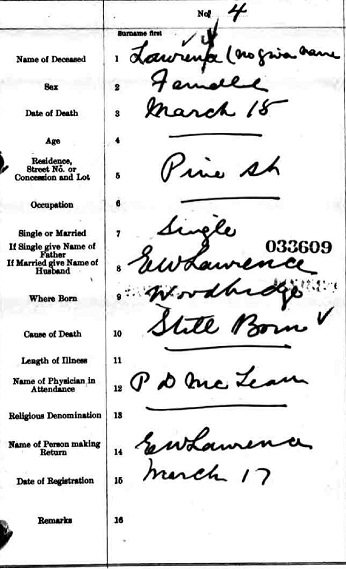 No. 4
Surname first
Name of Deceased 1 Lawrence (no given name
Sex 2 Female
Date of Death 3 March 15
Age 4
Residence, Street No. or Concession and Lot 5 Pine St
Occupation 6
Single or Married 7 Single
If Single give Name of Father
If Married give Name of Husband 8 E W Lawrence
033609
Where Born 9 Woodbridge
Cause of Death 10 Still Born ✓
Length of Illness 11
Name of Physician in Attendance 12 P D McLean
Religious Denomination 13
Name of Person making Return 14 E W Lawrence
Date of Registration 15 March 17
Remarks 16